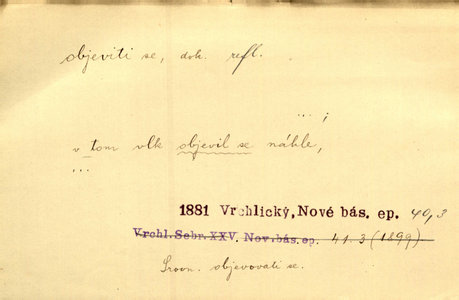 objeviti se, dok. refl.
... ;
v tom vlk objevil se náhle,
...
1881 Vrchlický, Nové bás. ep. 40,3
Vrchl. Sebr. XXV. Nov. bás. ep. 41.3 (1899)
Srovn. objevovati se.